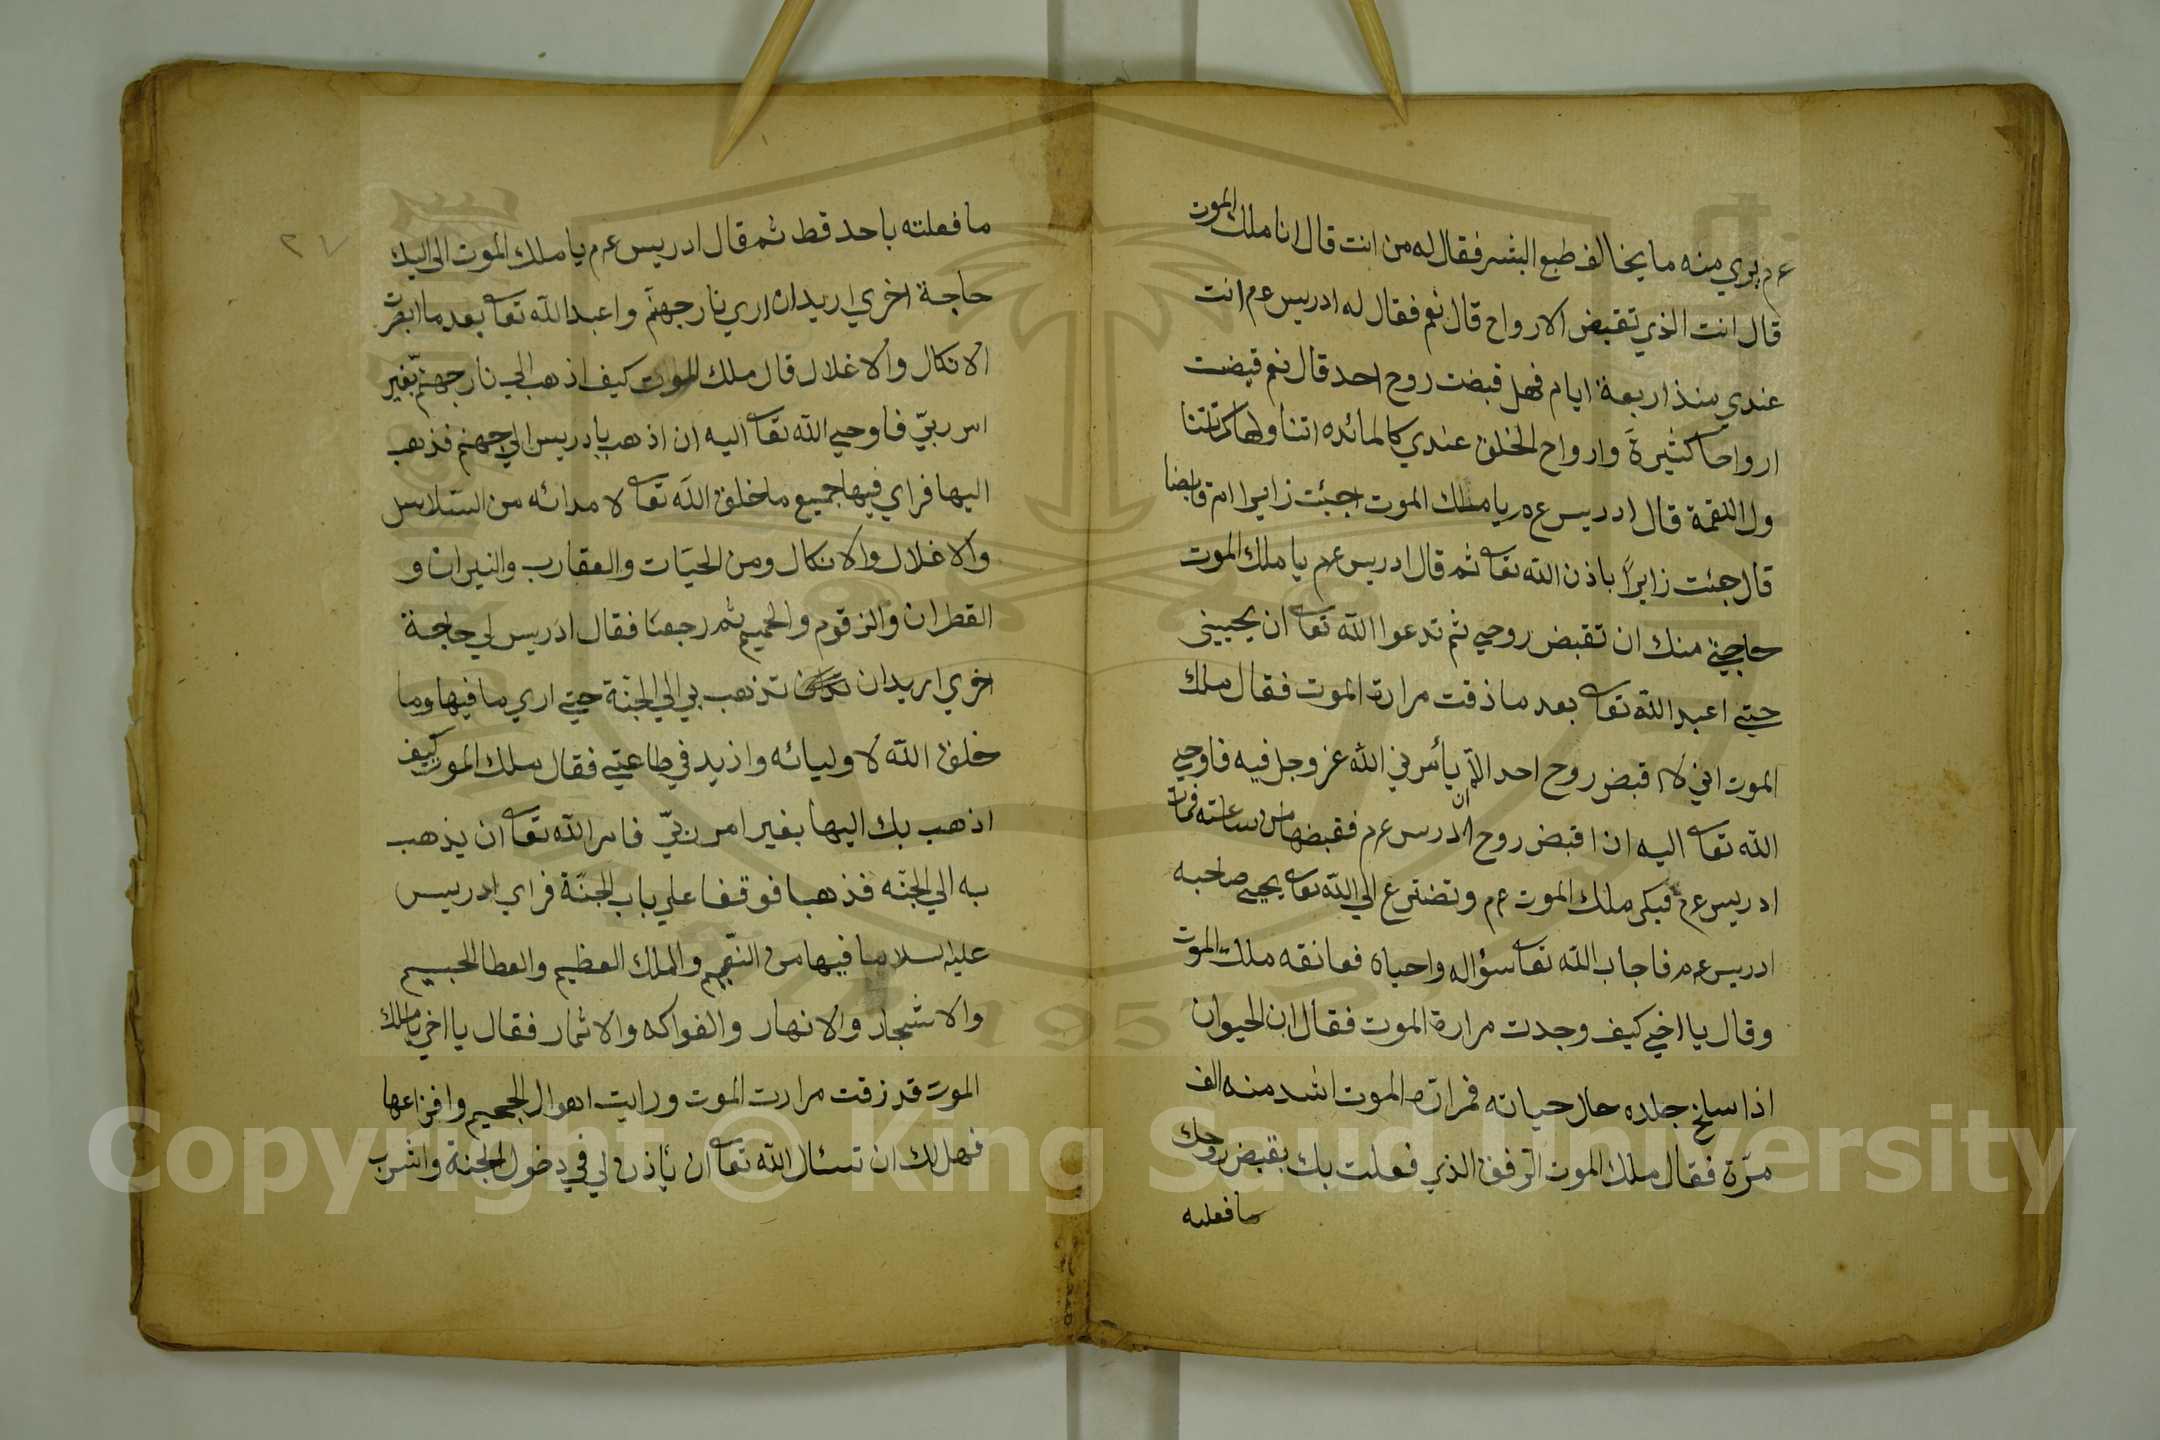 عم يري منه ما يخالف طبع البشر فقال له من انت قال انا ملك الموت
قال انت الذي تقبض الارواح قال نعم فقال له ادريس عم انت
عندي منذ اربعة ايام فهل قبضت روح احد قال نعم قبضت
ارواحا كثيرة وارواح الخلق عندي كالمائده اتناولها كما تتنا
ول اللقمة قال ادريس عم يا ملك الموت اجئت زايرا ام قابضا
قال جئت زايرًا باذن الله تعا ثم قال ادريس عم يا ملك الموت
حاجتي منك ان تقبض روحي ثم تدعوا الله تعا ان يحييني
حتي اعبد الله تعا بعد ما ذقت مرارة الموت فقال ملك
الموت اني لا اقبض روح احد الا ان يأمرني الله عز وجل فيه فاوحي
الله تعا اليه ان اقبض روح ادرس عم فقبضها من ساعته فمات
ادريس عم فبكي ملك الموت عم وتضرع الي الله تعا يحيي صاحبه
ادريس عم فاجاب الله تعا سؤاله واحياه فعانقه ملك الموت
وقال يا اخي كيف وجدت مرارة الموت فقال ان الحيوان
اذا سلخ جلده حال حياته فمرارة الموت اشد منه الف
مرّة فقال ملك الموت الرفق الذي فعلت بك بقبض روحك
ما فعلته
٢٧
ما فعلته باحد قط ثم قال ادريس عم يا ملك الموت الي اليك
حاجة اخري اريد ان اري نار جهنم واعبد الله تعا بعد ما ابصرت
الانكال والاغلال قال ملك الموت كيف اذهب الي نار جهنم بغير
امر ربيّ فاوحي الله تعا اليه ان اذهب بادريس الي جهنم فذهب
اليها فراي فيها جميع ما خلق الله تعا لامدائه من السلاسل
والاغلال والانكال ومن الحيّات والعقارب والنيران و
القطران والزقوم والحميم ثم رجعا فقال ادريس لي حاجة
اخري اريد ان تذهب بي الي الجنّة حتي اري ما فيها وما
خلق الله لاوليائه وازيد في طاعتي فقال ملك الموت كيف
اذهب بك اليها بغير امر ربيّ فامر الله تعا ان يذهب
به الي الجنّه فذهبا فوقفا علي باب الجنّة فراي ادريس
عليه السلام ما فيها من النّعيم والملك العظيم والعطا الجسيم
والاشجار والانهار والفواكه والاثمار فقال يا اخي يا ملك
الموت قد ذقت مرارت الموت ورايت اهوال الجحيم وافزاعها
فهل لك ان تسئال الله تعا ان يأذن لي في دخول الجنة واشرب
Copyright © King Saud University
1957